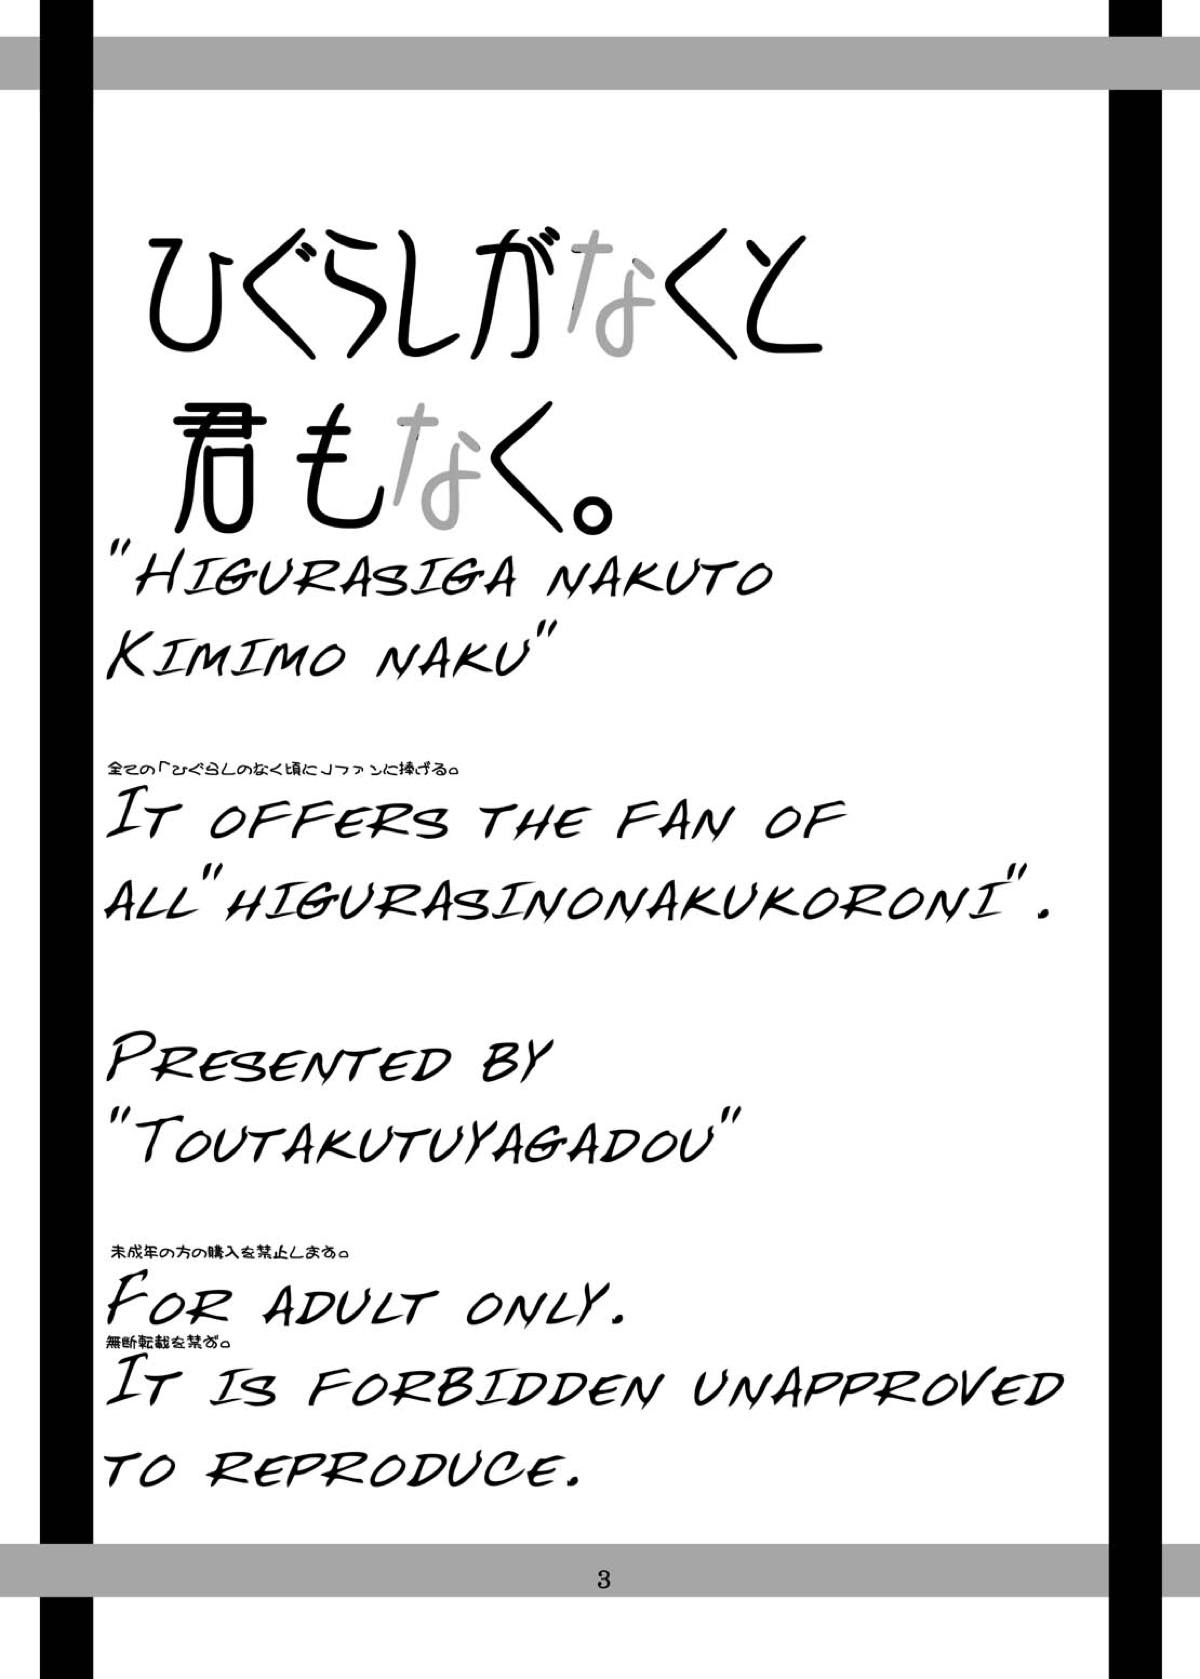 ひぐらしがなくと
君もなく。
"Higurasiga nakuto
Kimimo naku"
全ての「ひぐらしのなく頃に」ファンに捧げる。
It offers the fan of
all"higurasinonakukoroni".
Presented by
"Toutakutuyagadou"
未成年の方の購入を禁止します。
For adult only.
無断転載を禁ず。
It is forbidden unapproved
to reproduce.
3